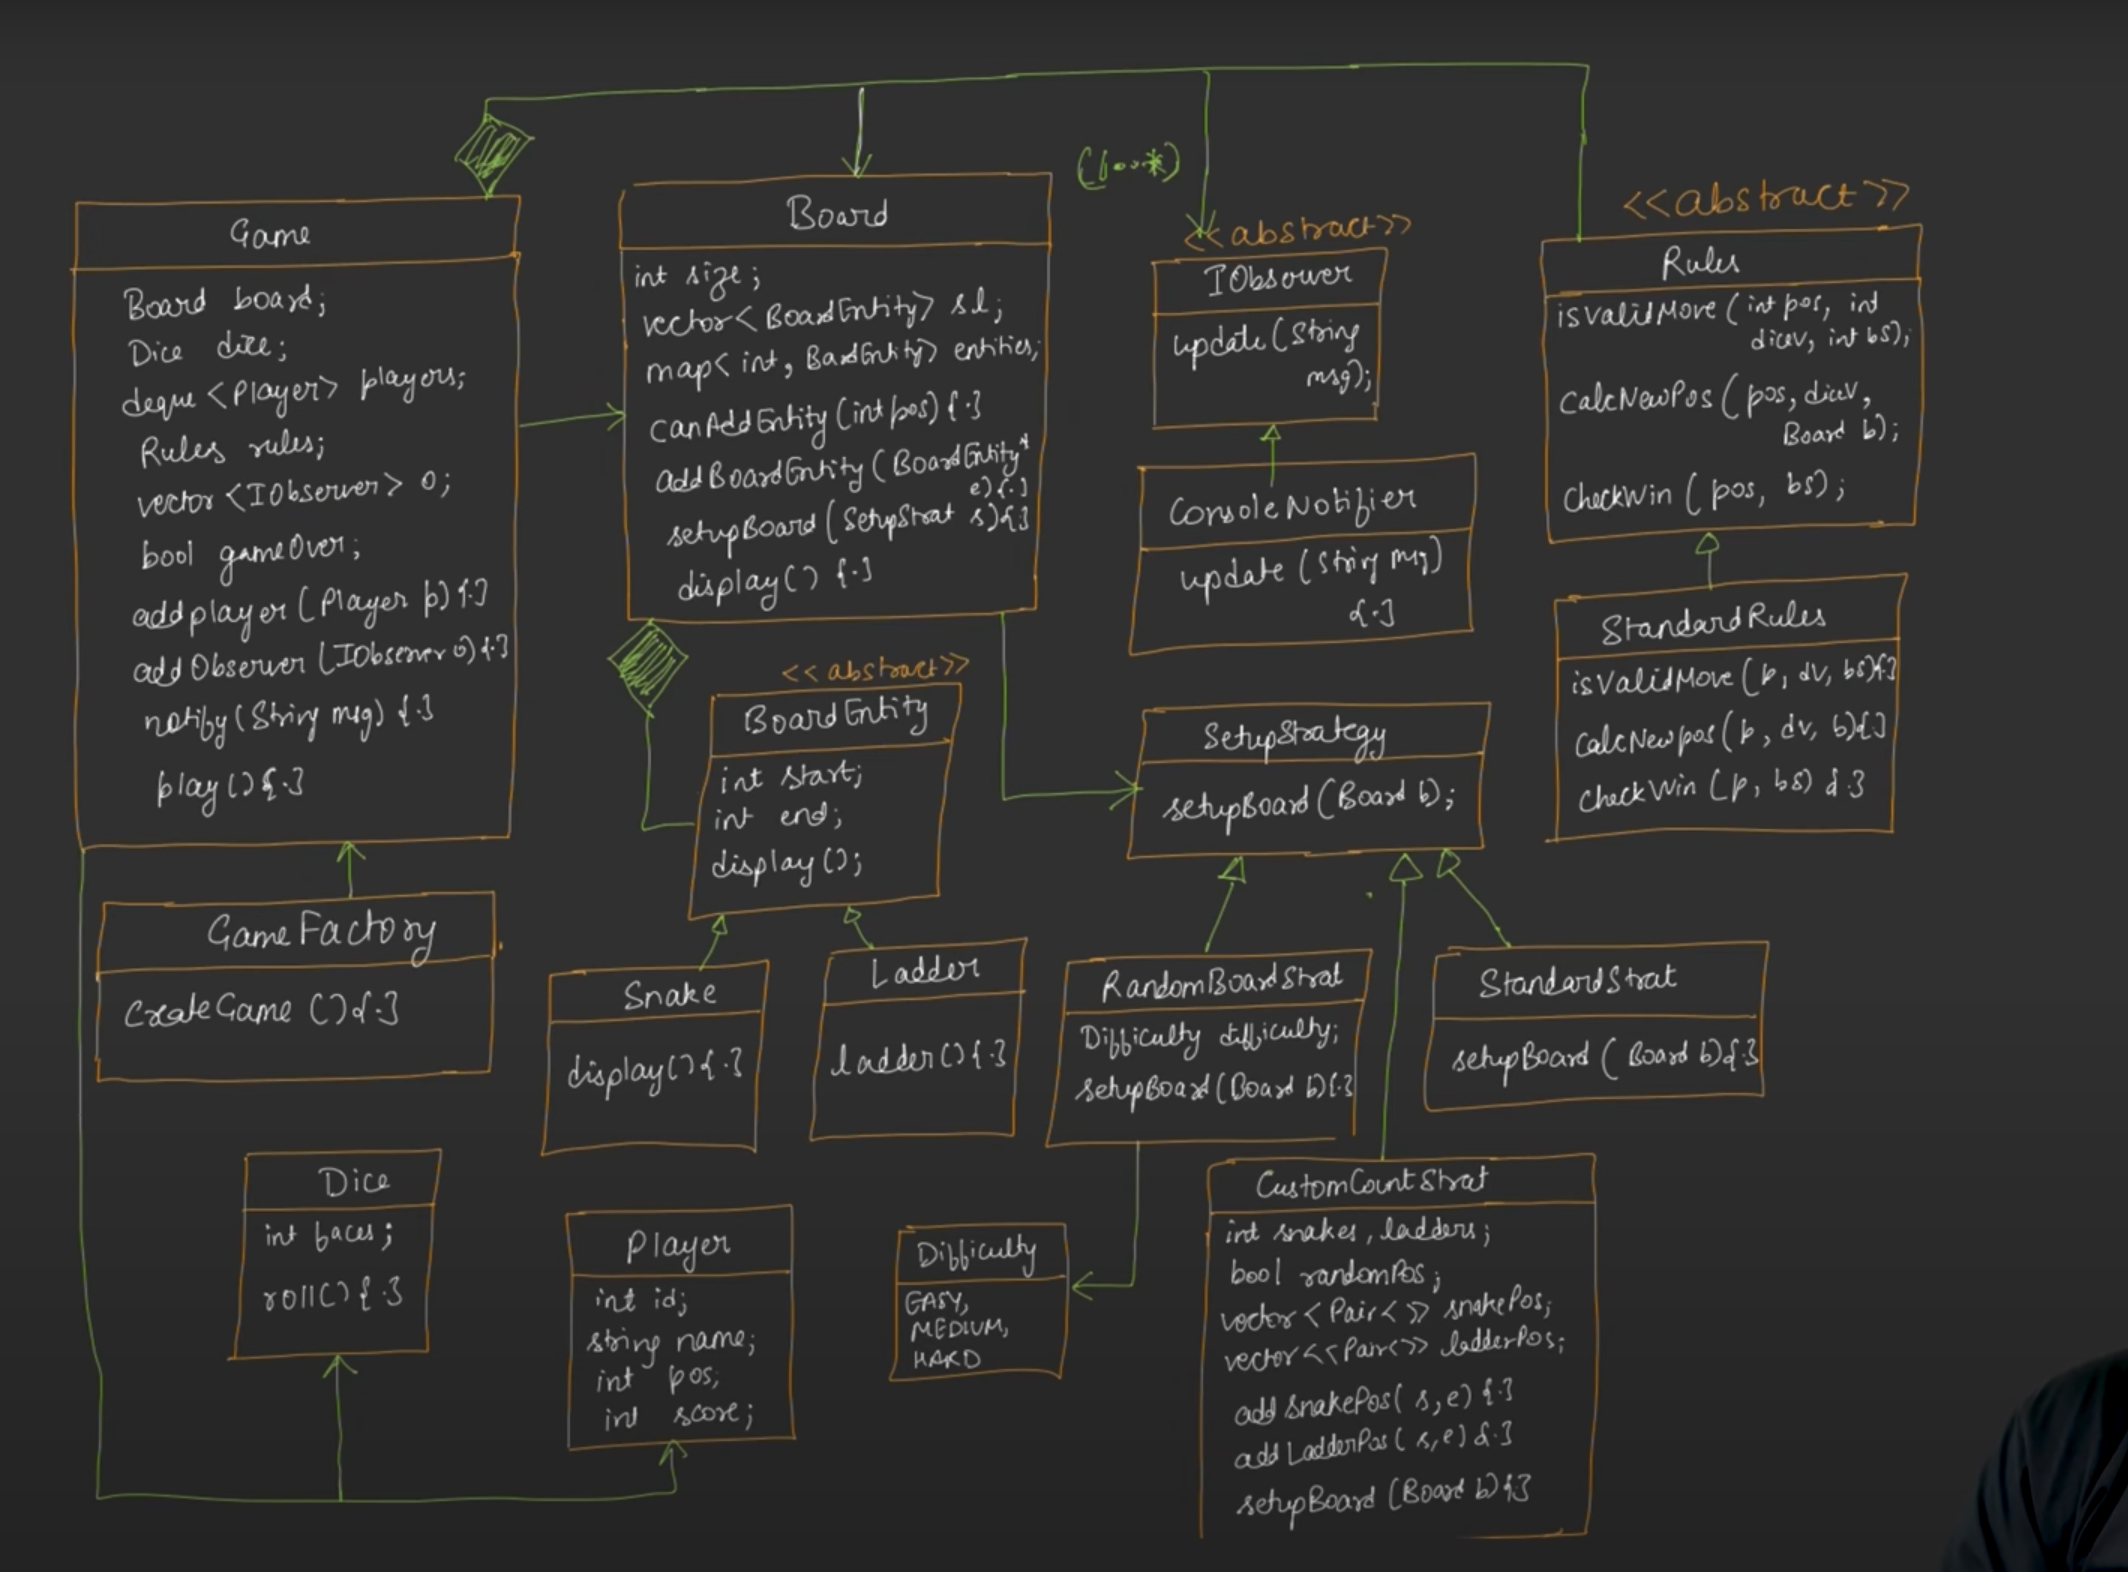 Game
Board board;
Dice dice;
deque <Player> players;
Rules rules;
vector <IObserver> o;
bool gameOver;
addplayer (Player p) {.}
addObserver (IObserver o) {.}
notify (String msg) {.}
play () {.}
Board
int size;
vector< BoardEntity> sl;
map< int, BardEntity> entities;
canAddEntity (int pos) {.}
addBoardEntity ( BoardEntity*
e) {.}
setupBoard ( SetupStrat s) {.}
display () {.}
(1...*)
<< abstract >>
IObserver
update ( String
msg);
ConsoleNotifier
update ( String msg)
{.}
<< abstract >>
Rules
isValidMove ( int pos, int
dicev, int bs);
CalcNewPos ( pos, dicev,
Board b);
CheckWin ( pos, bs);
StandardRules
isValidMove (p, dv, bs){.}
CalcNewpos (p, dv, b){.}
CheckWin (p, bs) {.}
<< abstract >>
BoardEntity
int start;
int end;
display ();
SetupStrategy
setupBoard ( Board b);
GameFactory
CreateGame () {.}
Snake
display() {.}
Ladder
ladder () {.}
RandomBoardStrat
Difficulty difficulty;
setupBoard ( Board b) {.}
StandardStrat
setupBoard ( Board b) {.}
Dice
int faces;
roll () {.}
Player
int id;
string name;
int pos;
int score;
Difficulty
EASY,
MEDIUM,
HARD
CustomCountStrat
int snakes, ladders;
bool randomPos;
vector < Pair< >> snakePos;
vector <<Pair<>> ladderPos;
add snakePos( s, e) {.}
add LadderPos ( s, e) {.}
setupBoard ( Board b) {.}